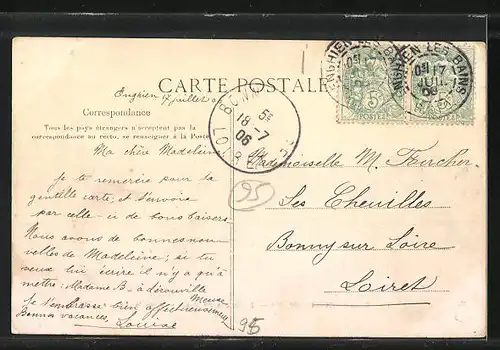 CARTE POSTALE
Enghien 17 juillet 06
Correspondance
Tous les pays étrangers n'acceptent pas la
correspondance au recto, se renseigner à la Poste
Ma chère Madeleine
je te remercie pour la
gentille carte et t'envoie
par celle-ci de bons baisers
Nous avons de bonnes nou-
velles de Madeleine ; si tu
veux lui écrire il n'y a qu'à
mettre : Madame B - à
Meuse
Je t'embrasse bien affectueusement
Bonnes vacances,
Louise
ENGHIEN LES BAINS
17
JUIL
06
5
POSTES
ENGHIEN LES BAINS
17
JUIL
06
BONNY
5E
18 -7
06
LOIRET
Mademoiselle M. Furcher
Les Chenilles
Bonny sur Loire
Loiret
95
95